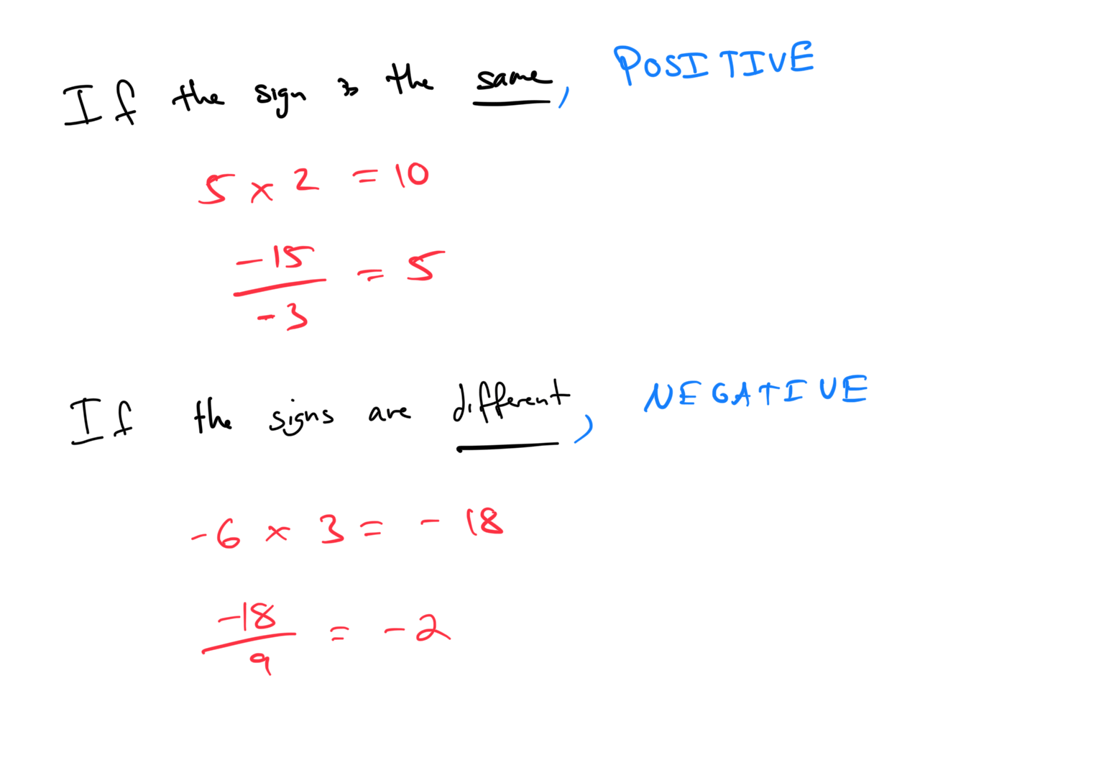 If the sign is the same, POSITIVE
5 × 2 = 10
-15
-3
= 5
If the signs are different, NEGATIVE
-6 × 3 = - 18
-18
9
= -2